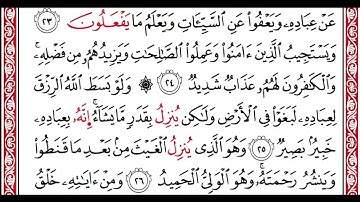 عَنْ عِبَادِهِۦ وَيَعْفُوا۟ عَنِ ٱلسَّيِّـَٔاتِ وَيَعْلَمُ مَا يَفْعَلُونَ ٢٣
وَيَسْتَجِيبُ ٱلَّذِينَ ءَامَنُوا۟ وَعَمِلُوا۟ ٱلصَّٰلِحَٰتِ وَيَزِيدُهُم مِّن فَضْلِهِۦۚ
وَٱلْكَٰفِرُونَ لَهُمْ عَذَابٌ شَدِيدٌ ٢٤ ۞ وَلَوْ بَسَطَ ٱللَّهُ ٱلرِّزْقَ
لِعِبَادِهِۦ لَبَغَوْا۟ فِي ٱلْأَرْضِ وَلَٰكِن يُنزِلُ بِقَدَرٍ مَّا يَشَآءُۚ إِنَّهُۥ بِعِبَادِهِۦ
خَبِيرٌۢ بَصِيرٌ ٢٥ وَهُوَ ٱلَّذِي يُنزِلُ ٱلْغَيْثَ مِنۢ بَعْدِ مَا قَنَطُوا۟
وَيَنشُرُ رَحْمَتَهُۥۚ وَهُوَ ٱلْوَلِيُّ ٱلْحَمِيدُ ٢٦ وَمِنْ ءَايَٰتِهِۦ خَلْقُ